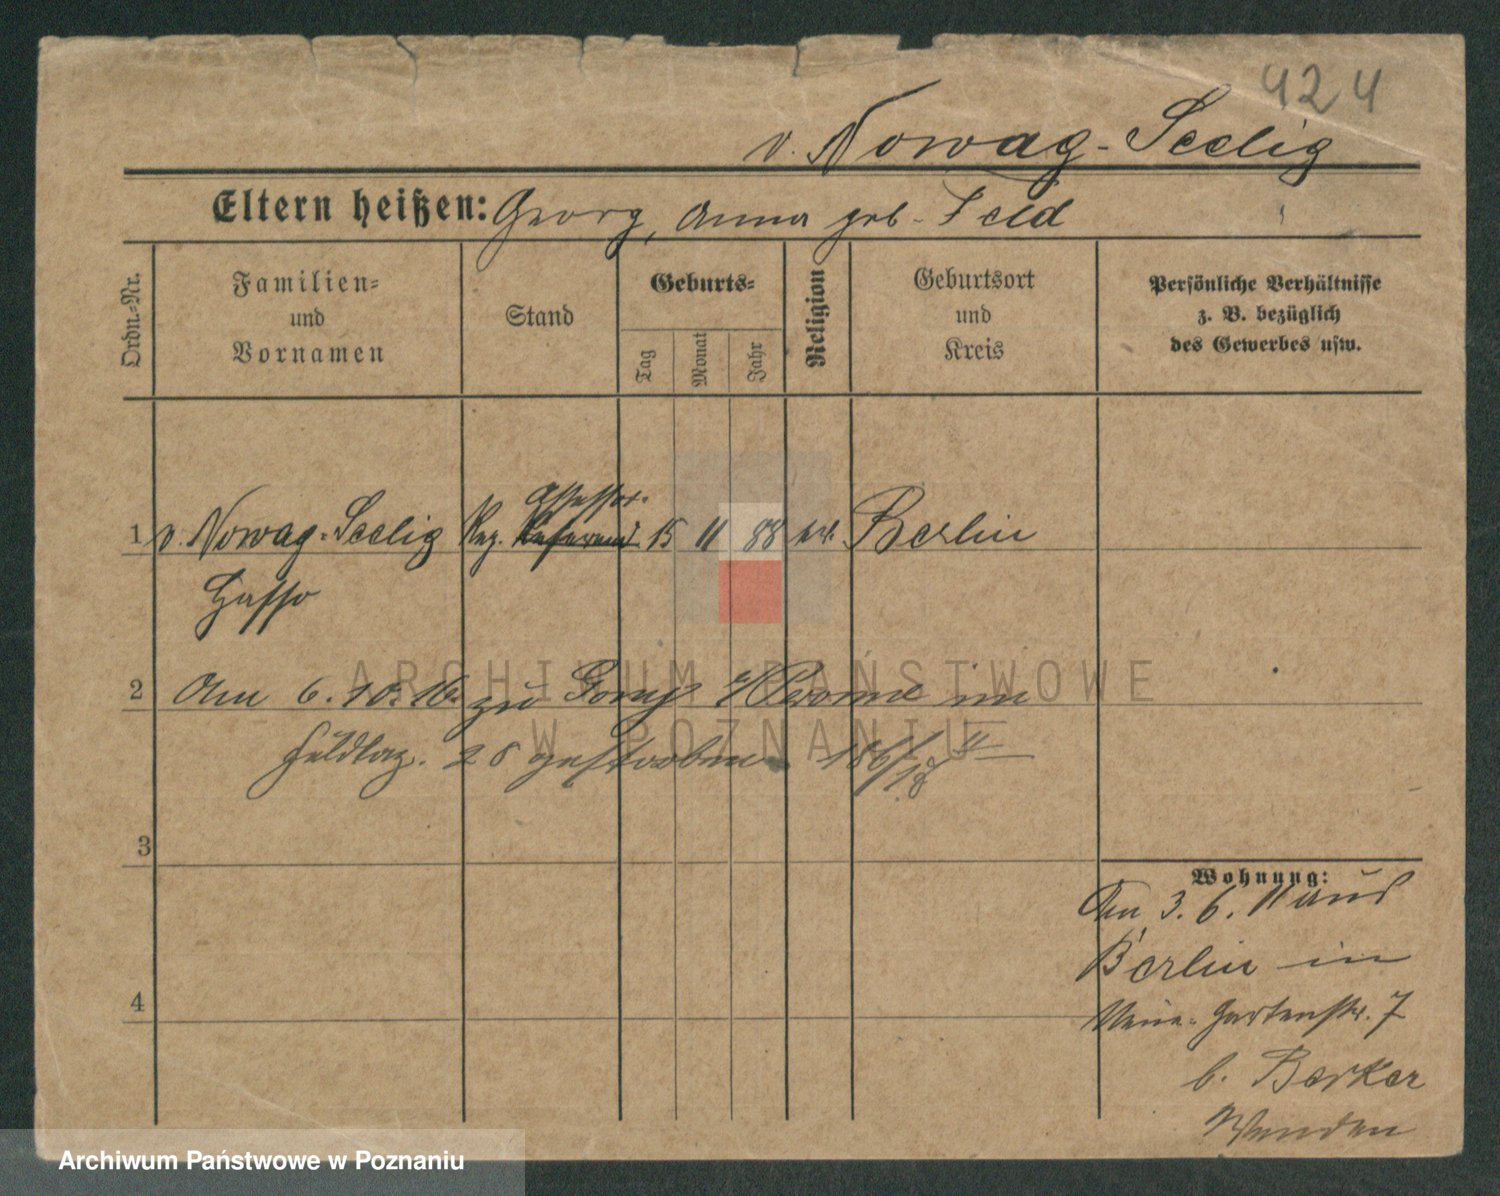 424
v. Nowag-Seelig
Eltern heißen: Georg, Anna geb. Feld
Ordn.-Nr.
Familien-
und
Vornamen
Stand
Geburts-
Tag
Monat
Jahr
Religion
Geburtsort
und
Kreis
Persönliche Verhältnisse
z. B. bezüglich
des Gewerbes usw.
Assessor
1 v. Nowag-Seelig Reg. Referend. 15 11 88 Berlin
Hasso
2 Am 6.10.16 zu Peronne im
Feldlaz. 28 gestorben
3
4
Wohnung:
Am 3.6.11 aus
Berlin in
Neue-Gartenstr. 7
b. Berker
Wenden
ARCHIWUM PAŃSTWOWE
W POZNANIU
Archiwum Państwowe w Poznaniu